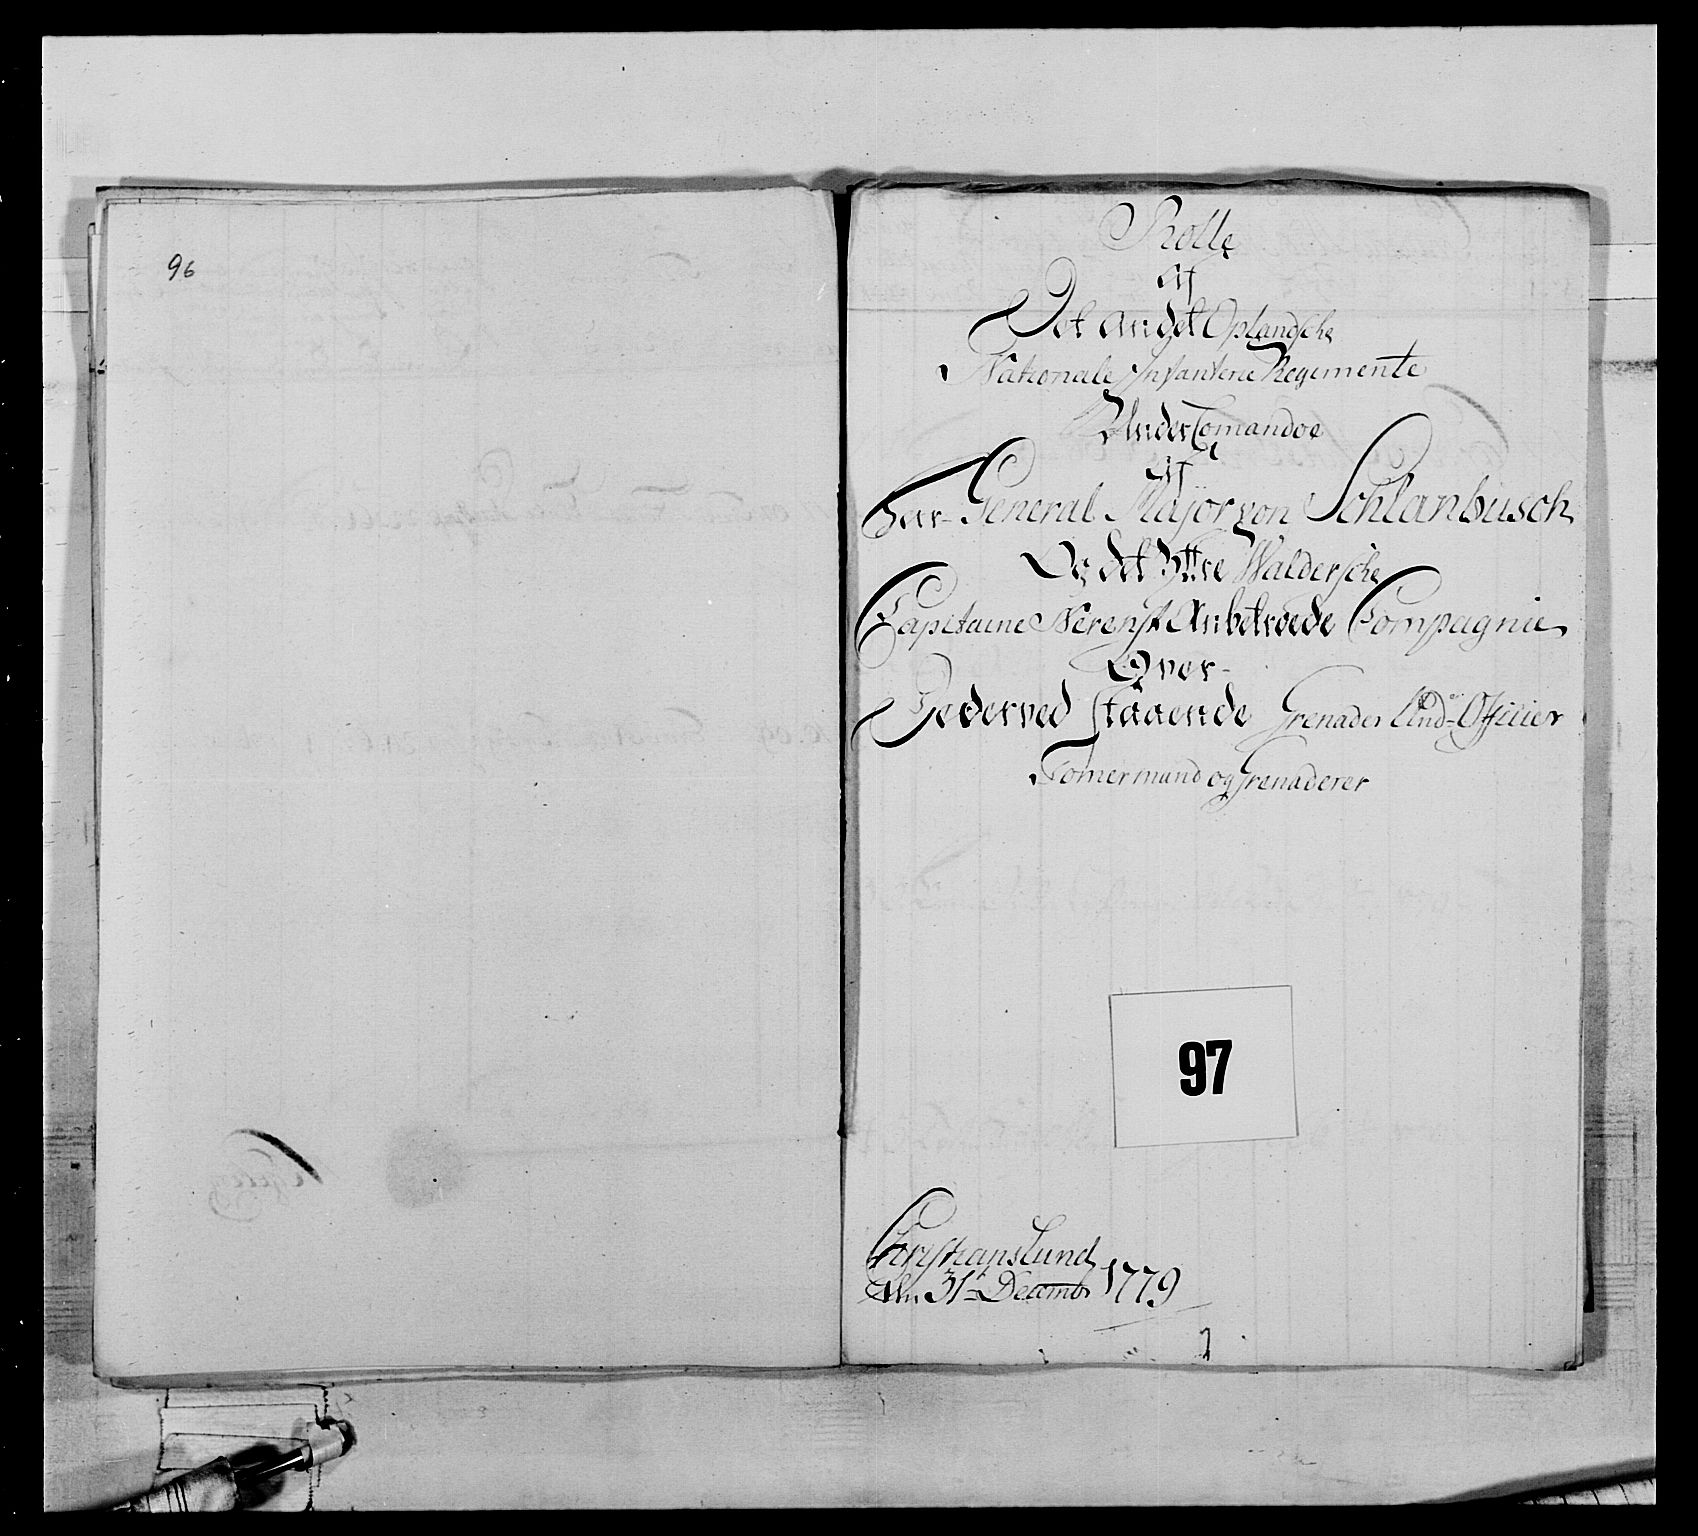 96
Rolle
Af
Det andet Oplandsche
Nationale Infanterie Regimente
Under Comandoe
Af
Herr General Major von Schlanbusch
Og det Yttre Waldersche
Capitaine Nerenst Anbetroede Compagnie
Over
Vederved staaende Grenader Und: Officier
Tomermand og Grenaderer
97
Christianslund
den 31t Decembr 1779